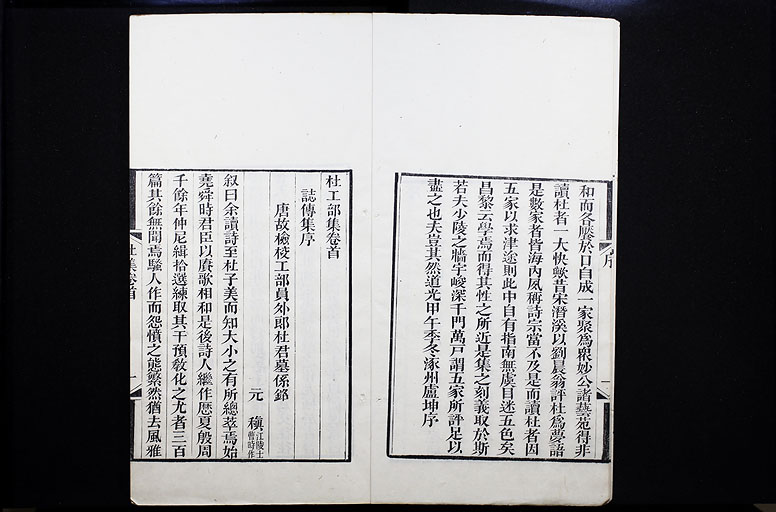 序
一
和而各賸於口自成一家聚爲羣妙公諸藝苑得非
讀杜者一大快歟昔宋潛溪以劉晨翁評杜爲夢語
是數家者皆海內夙稱詩宗當不及是而讀杜者因
五家以求津逵則此中自有指南無虞目迷五色矣
昌黎云學焉而得其性之所近是集之刻義取於斯
若夫少陵之牆宇峻深千門萬戸謂五家所評足以
盡之也夫豈其然道光甲午季冬涿州盧坤序
杜工部集卷首
誌傳集序
唐故檢校工部員外郎杜君墓係銘
元稹江陵士曹時作
敘曰余讀詩至杜子美而知大小之有所總萃焉始
堯舜時君臣以賡歌相和是後詩人繼作歷夏殷周
千餘年仲尼緝拾選練取其干預敎化之尤者三百
篇其餘無聞焉騷人作而怨憤之態繁然猶去風雅
杜集卷首
一